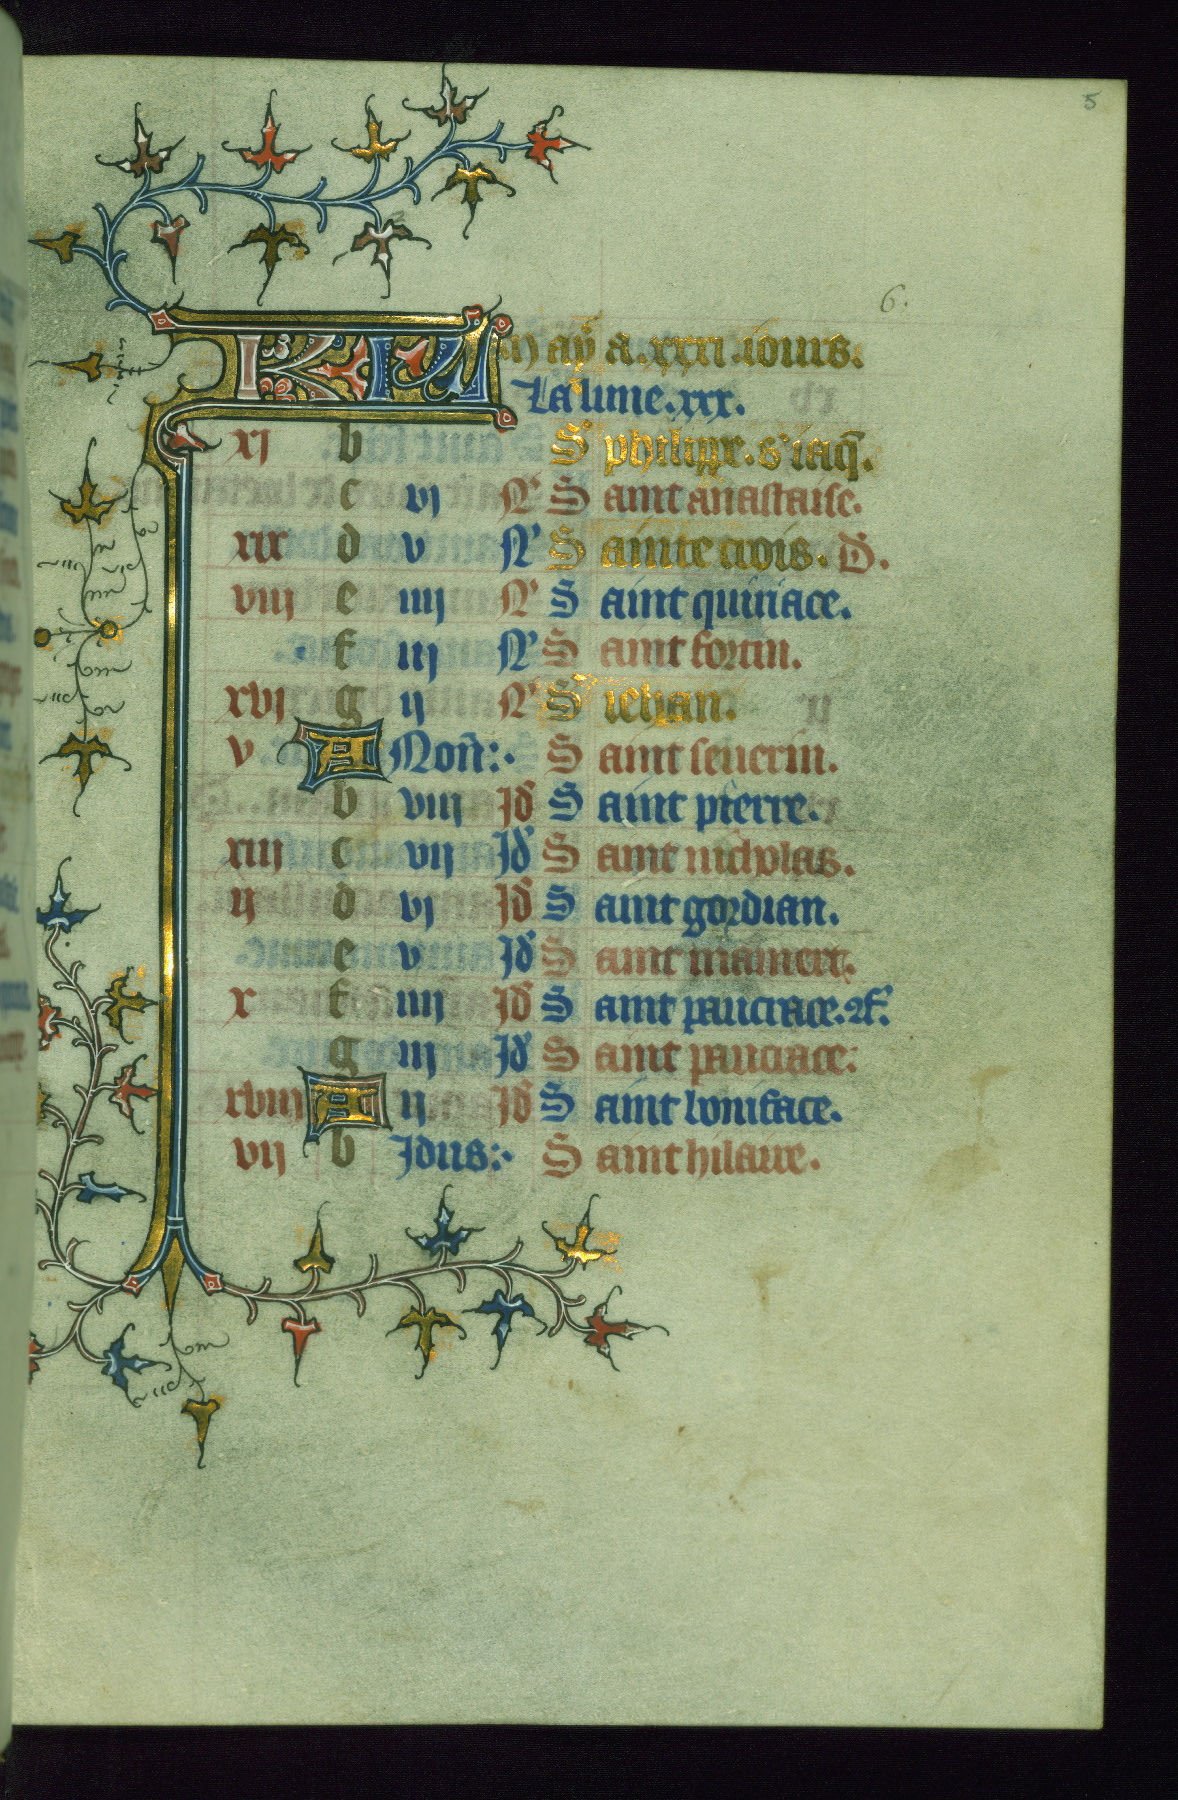 5
6.
KL May a .xxxi. iours.
La lune .xxx.
xj b S' philippe. s' iaq̄.
c vj N' Saint anastaise.
xix d v N' Sainte crois. D.
viij e iiij N' Saint quiriace.
f iij N' Saint fortin.
xvj g ij N' S' iehan.
v A Noñ: Saint seuerin.
b viij Jd' Saint pierre.
xiij c vij Jd' Saint nicholas.
ij d vj Jd' Saint gordian.
e v Jd' Saint mamert.
x f iiij Jd' Saint pancrace.
g iij Jd' Saint pancrace:
xviij A ij Jd' Saint boniface.
vij b Jdus: Saint hilaire.